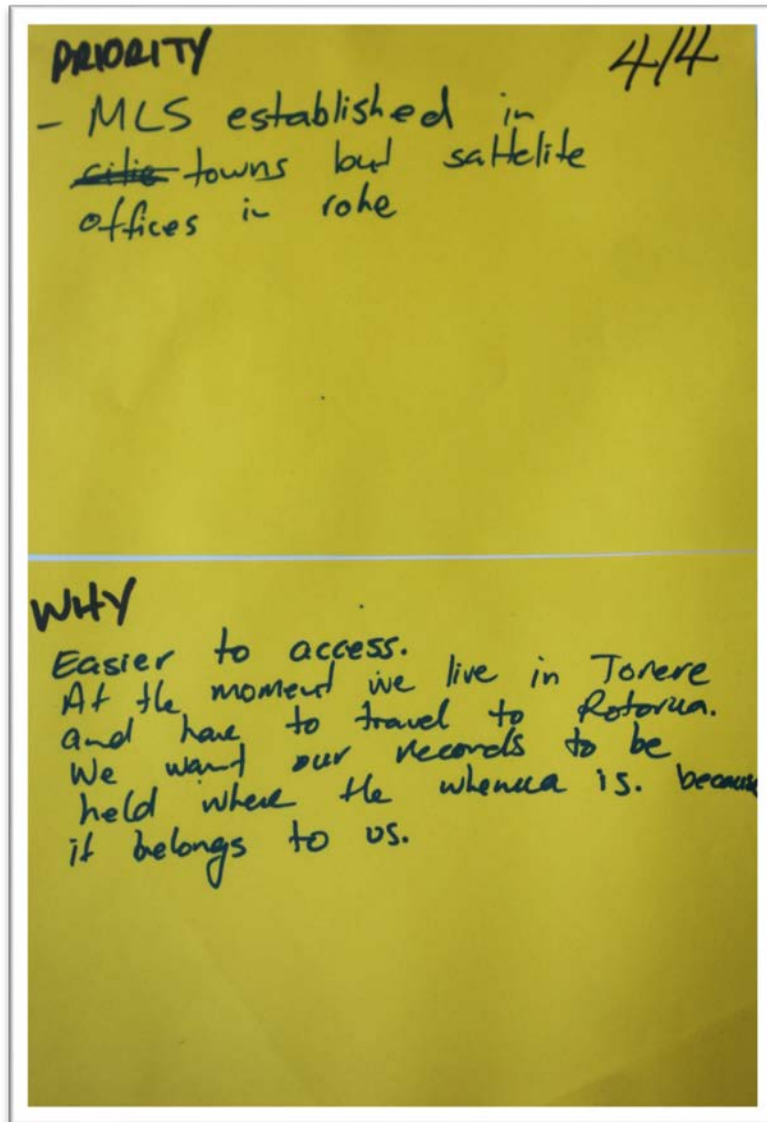 PRIORITY 4/4
- MLS established in
citie towns but sattelite
offices in rohe
WHY
Easier to access.
At the moment we live in Torere
and have to travel to Rotorua.
We want our records to be
held where the whenua is. because
it belongs to us.